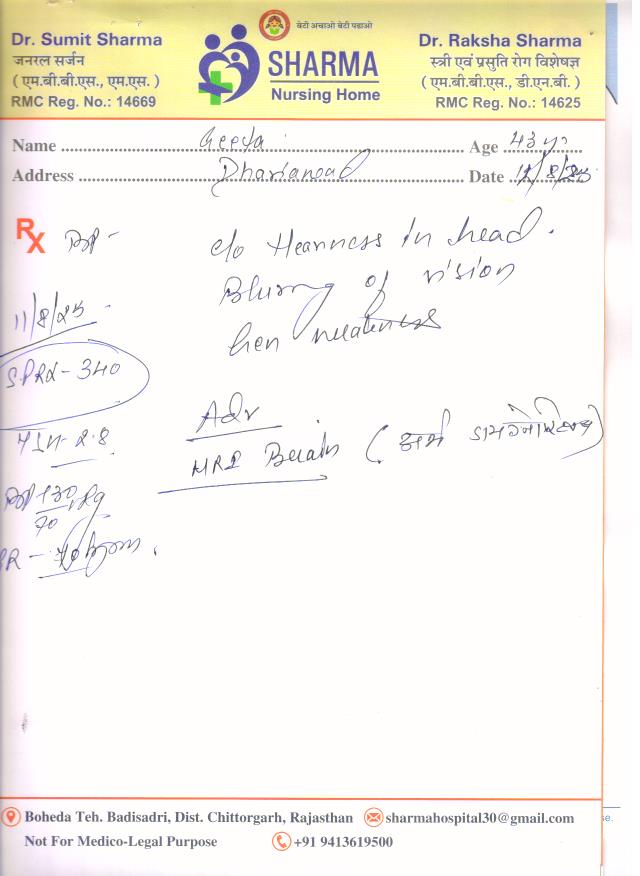 बेटी बचाओ बेटी पढ़ाओ
Dr. Sumit Sharma
जनरल सर्जन
( एम.बी.बी.एस., एम.एस. )
RMC Reg. No.: 14669
SHARMA
Nursing Home
Dr. Raksha Sharma
स्त्री एवं प्रसुति रोग विशेषज्ञ
( एम.बी.बी.एस., डी.एन.बी. )
RMC Reg. No.: 14625
Name Geeta Age 43 yr
Address Dhariawad Date 12/8/25
Rx BP - c/o Heaviness in head.
Blurring of vision
Gen weakness
11/8/25
S.PRL - 340
Adv
MRI Brain
BP 130/70
PR - 70 bpm.
Boheda Teh. Badisadri, Dist. Chittorgarh, Rajasthan sharmahospital30@gmail.com
Not For Medico-Legal Purpose +91 9413619500
se.